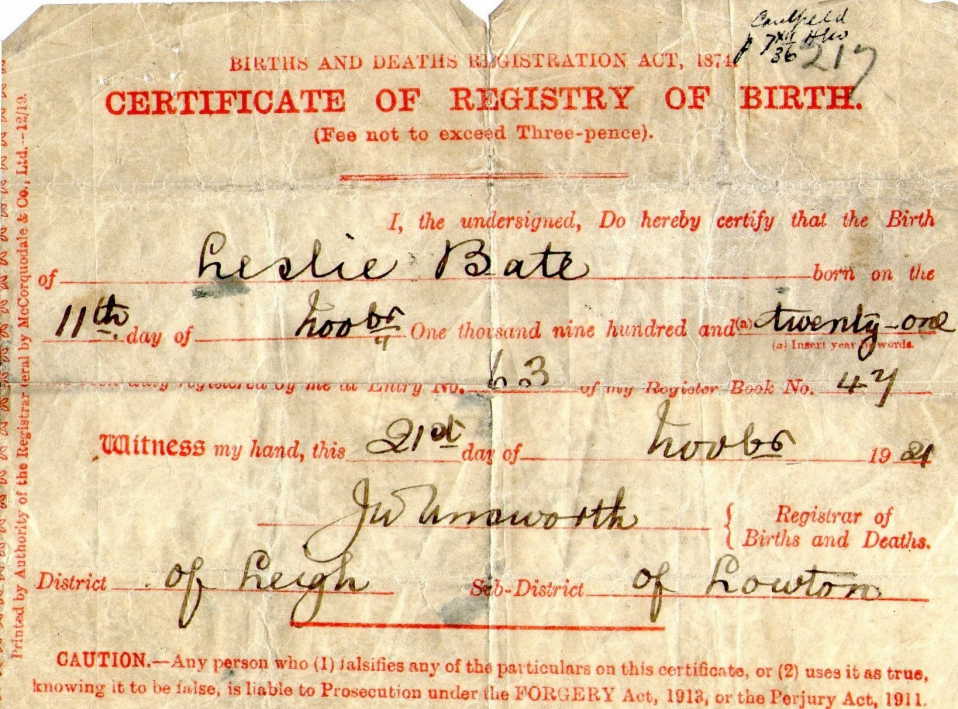 Caulfield
217
36
BIRTHS AND DEATHS REGISTRATION ACT, 1874.
CERTIFICATE OF REGISTRY OF BIRTH.
(Fee not to exceed Three-pence).
I, the undersigned, Do hereby certify that the Birth
of Leslie Bate born on the
11th day of Novbr One thousand nine hundred and (a) twenty-one
(a) Insert year in words.
registered by me at Entry No. 63 of my Register Book No. 47
Witness my hand, this 21st day of Novbr 1921
JW Unsworth Registrar of
Births and Deaths.
District of Leigh Sub-District of Lowton
CAUTION.—Any person who (1) falsifies any of the particulars on this certificate, or (2) uses it as true,
knowing it to be false, is liable to Prosecution under the FORGERY Act, 1913, or the Perjury Act, 1911.
Printed by Authority of the Registrar General by McCorquodale & Co., Ltd.—12/19.